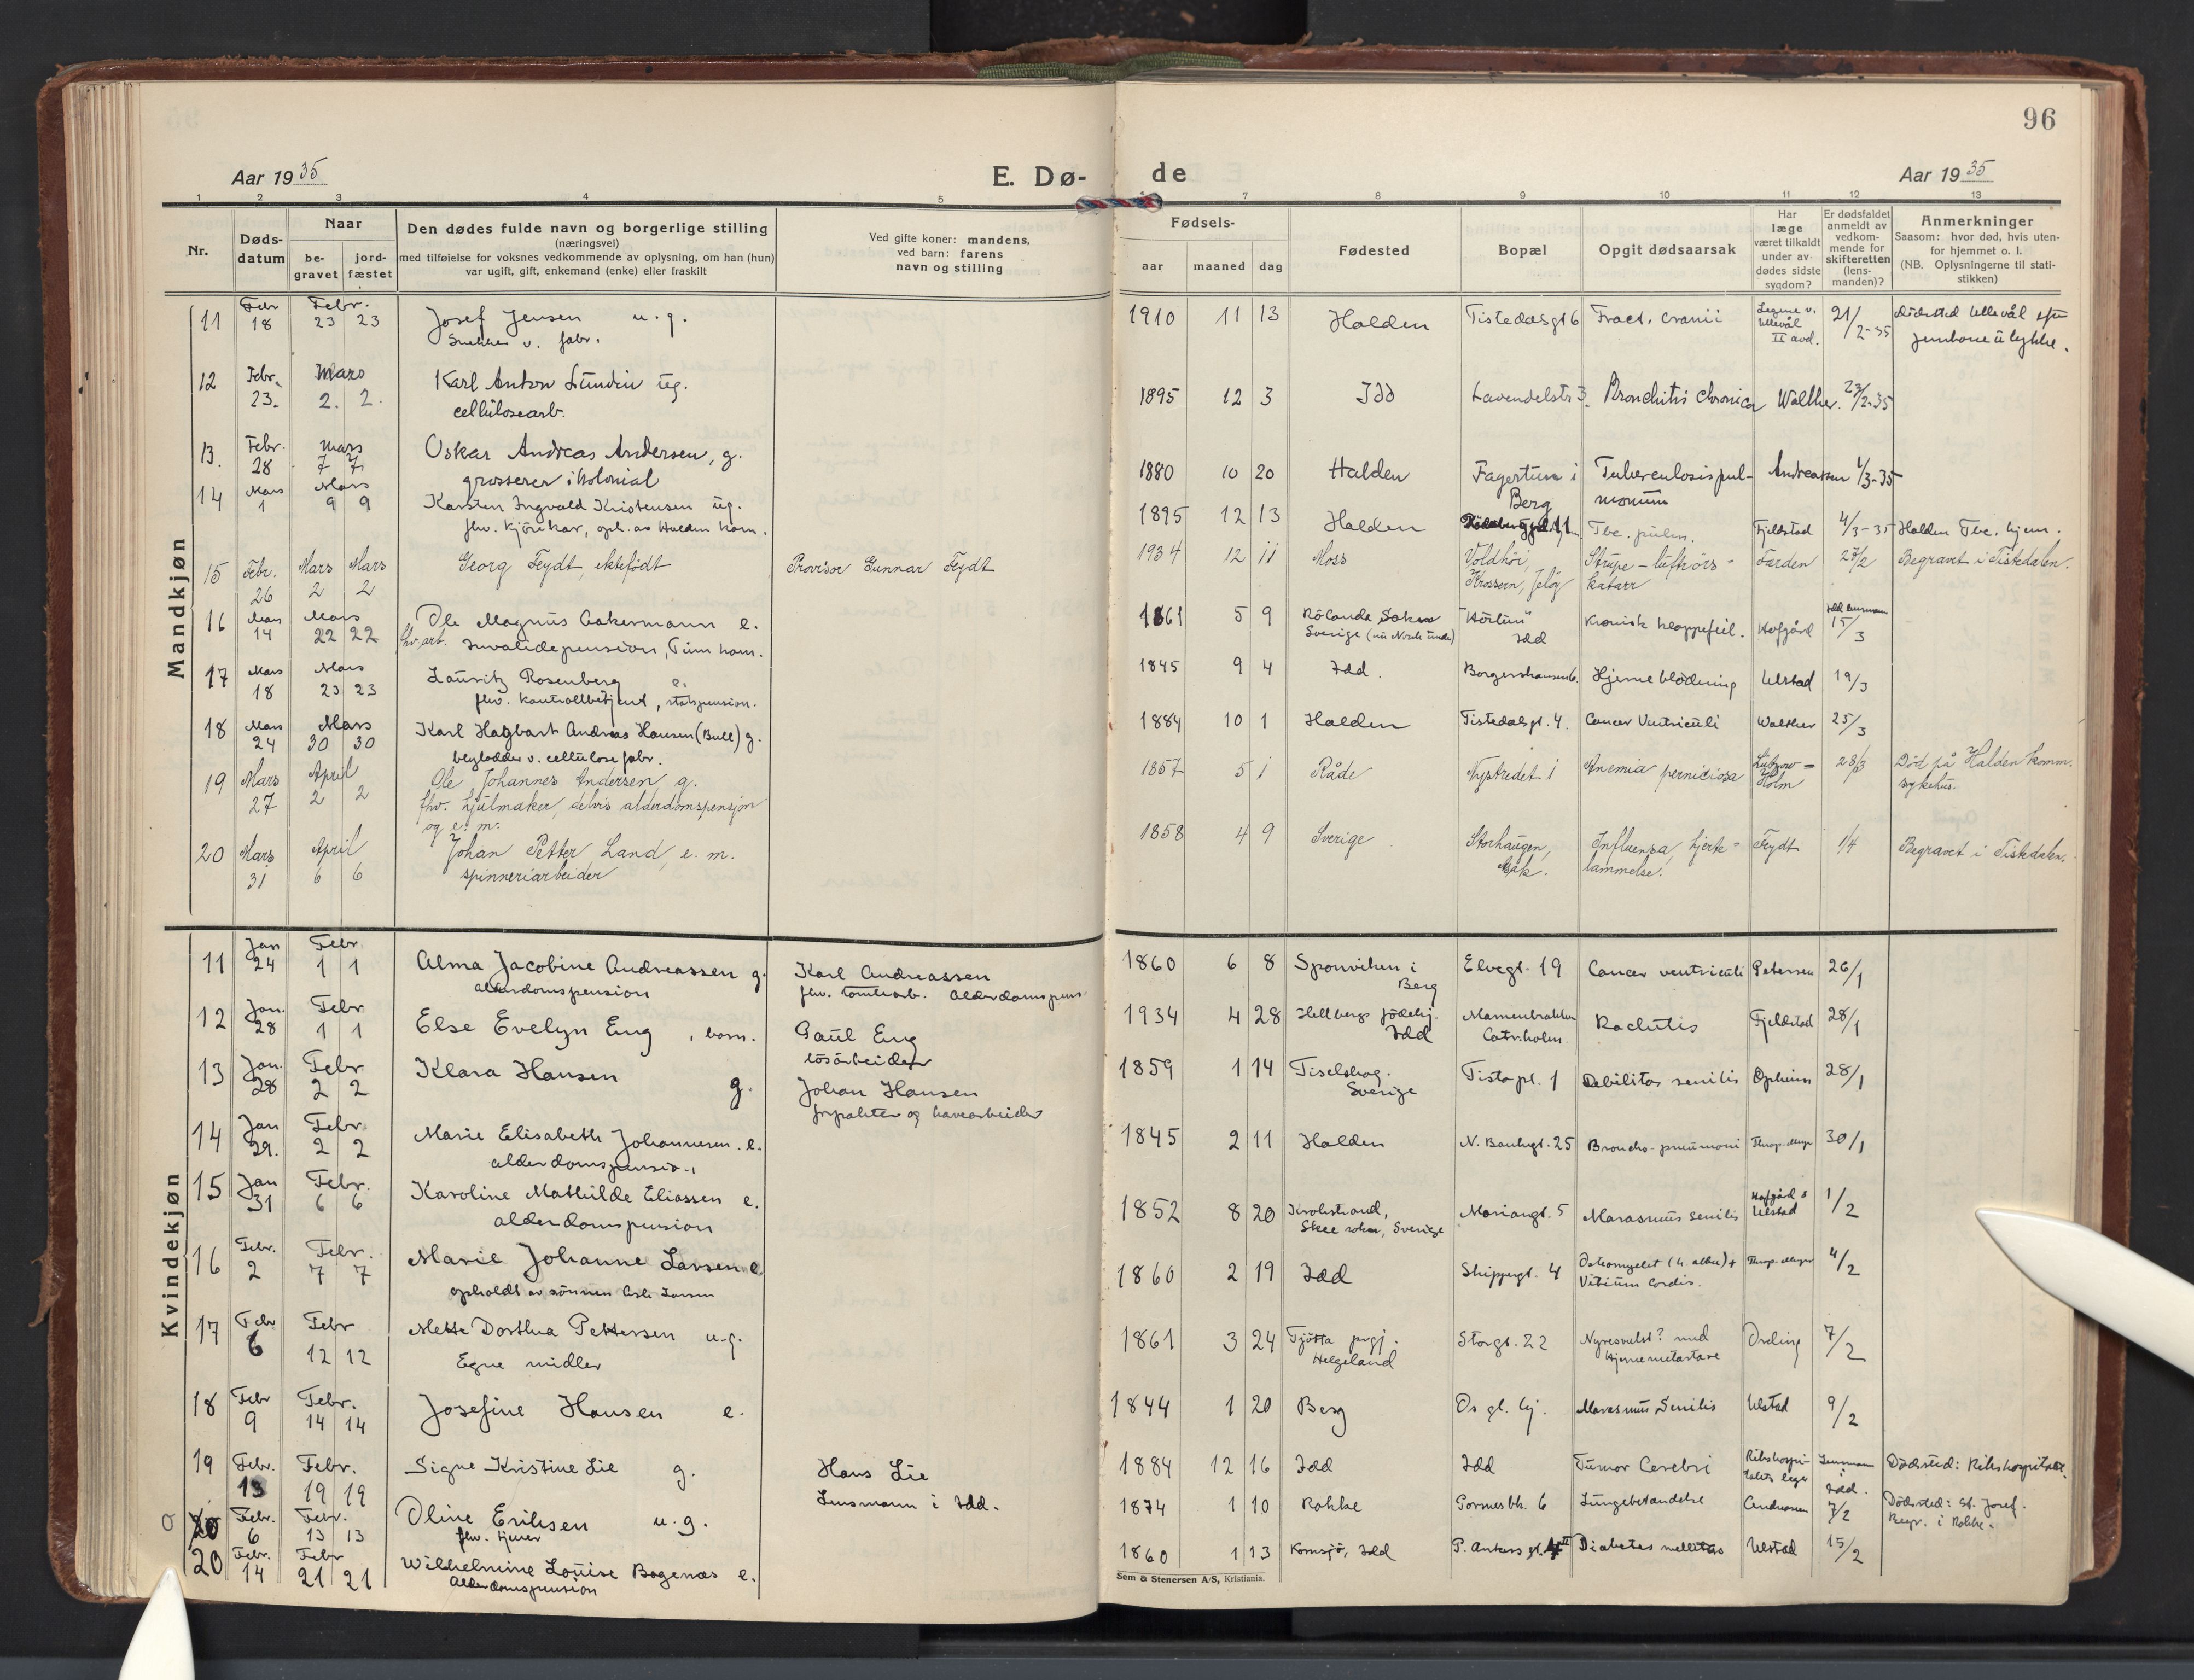 96
Aar 1935
E. Dø-
de
Aar 1935
1 2 3 4 5 7 8 9 10 11 12 13
Nr.
Døds-
datum
Naar
be-
gravet
jord-
fæstet
Den dødes fulde navn og borgerlige stilling
(næringsvei)
med tilføielse for voksnes vedkommende av oplysning, om han (hun)
var ugift, gift, enkemand (enke) eller fraskilt
Ved gifte koner: mandens,
ved barn: farens
navn og stilling
Fødsels-
aar maaned dag
Fødested
Bopæl
Opgit dødsaarsak
Har
læge
været tilkaldt
under av-
dødes sidste
sygdom?
Er dødsfaldet
anmeldt av
vedkom-
mende for
skifteretten
(lens-
manden)?
Anmerkninger
Saasom: hvor død, hvis uten-
for hjemmet o. l.
(NB. Oplysningerne til stati-
stikken)
Mandkjøn
11 Febr 18 Febr. 23 23 Josef Jensen u. g. 1910 11 13 Halden Tistedalsgt 6 Fract. cranii Ullevål II avd. 21/2-35 Dødssted Ullevål
v. fabr.
12 Febr. 23. Mars 2. 2. Karl Anton Lundin ug. 1895 12 3 Idd Lavendelstr 3 Bronchitis chronica Walther. 23/2-35
cellulosearb.
13. Febr. 28 Mars 7 7 Oskar Andreas Andersen, g. 1880 10 20 Halden Fagertun i Berg Tuberculosis pul-
monum Andreassen 1/3-35
grosserer i kolonial
14 Mars 1 Mars 9 9 Karsten Ingvald Kristensen ug. 1895 12 13 Halden Tbc. pulm. Fjeldstad 4/3-35 Halden Tbc. hjem.
fhv. kjørekar, oph. av Halden kom.
15 Febr. 26 Mars 2 Mars 2 Georg Feydt, ektefødt Provisor Gunnar Feydt 1934 12 11 Moss Voldhöi, Krossern, Jeløy Strupe-luftrörs-
katarr Farden 27/2 Begravet i Tistedalen.
16 Mars 14 Mars 22 22 Ole Magnus Aakermann e. 1861 5 9 Sverige Idd Kronisk klappefeil. Hofgård 15/3
fhv. arb. Invalidepension,
17 Mars 18 Mars 23 23 Lauritz Rosenberg e. 1845 9 4 Idd. Borgershausen 6. Hjerneblödning Ulstad 19/3
fhv. kontrollbetjent, statspension.
18 Mars 24 Mars 30 30 Karl Hagbart Andreas Hansen (Bull) g. 1884 10 1 Halden Tistedalsgt. 4. Cancer Ventriculi Walther 25/3
v. cellulose fabr.
19 Mars 27 April 2 2 Ole Johannes Andersen, g. 1857 5 1 Råde Nystredet 1 Anemia perniciosa Lützow-
Holm 28/3 Död på Halden komm.
sykehus.
fhv. hjulmaker, delvis alderdomspensjon
og e. m.
20 Mars 31 April 6 6 Johan Petter Land, e. m. 1858 4 9 Sverige Storhaugen, Influensa, hjerte-
lammelse. Feydt 1/4 Begravet i Tistedalen.
spinneriarbeider
Kvindekjøn
11 Jan 24 Febr 1 1 Alma Jacobine Andreassen g. Karl Andreassen 1860 6 8 Sponviken i Berg Elvegt. 19 Cancer ventriculi Petersen 26/1
alderdomspension fhv. tomtearb. Alderdomspens.
12 Jan. 28 Febr 1 1 Else Evelyn Eng, barn. Paul Eng 1934 4 28 Hellbergs födehj. Idd Catrholm. Rachitis Fjeldstad 28/1
lösarbeider
13 Jan. 28 Febr 2 2 Klara Hansen g. Johan Hansen 1859 1 14 Tiselskog. Sverige Tistapl. 1 Debilitas senilis Opheim 28/1
og havearbeider
14 Jan 29. Febr. 2 2 Marie Elisabeth Johannesen. e. 1845 2 11 Halden N. Bankgt. 25 Broncho-pneumoni 30/1
alderdomspension
15 Jan 31 Febr. 6 6 Karoline Mathilde Eliassen e. 1852 8 20 Krokstrand,
Skee sokn, Sverige Mariangt. 5 Marasmus senilis Hofgård & Ulstad 1/2
alderdomspension
16 Febr. 2 Febr. 7 7 Marie Johanne Larsen e. 1860 2 19 Idd Skippergt. 4 Vitium Cordis. 4/2
opholdt av sönnen Larsen
17 Febr 6 Febr 12 12 Mette Dorthea Pettersen u.g. 1861 3 24 Tjötta prgj.
Helgeland Storgt. 22 Nyresvulst? med
Hjernemetastase Ording 7/2
Egne midler
18 Febr 9 Febr. 14 14 Josefine Hansen e. 1844 1 20 Berg Os gl. hj. Marasmus Senilis Ulstad 9/2
19 Febr. 13 Febr. 19 19 Signe Kristine Lie g. Hans Lie 1884 12 16 Idd Idd Tumor Cerebri Rikshospi-
talets leger Lensmann i Idd. Dödssted: Rikshospitalet.
Lensmann i Idd.
0 20 Febr. 6 Febr. 13 13 Oline Eriksen u.g. 1874 1 10 Rokke Gormersbk. 6 Lungebetændelse Andreassen 7/2 Dödssted: St. Josef.
Begr. i Rokke.
fhv. tjener
20 Febr. 14 Febr 21 21 Wilhelmine Louise Bogenæs e. 1860 1 13 Kornsjö, Idd P. Ankers gt. 4 II Diabetes mellitus Ulstad 15/2
Alderdomspension
Sem & Stenersen A/S, Kristiania.